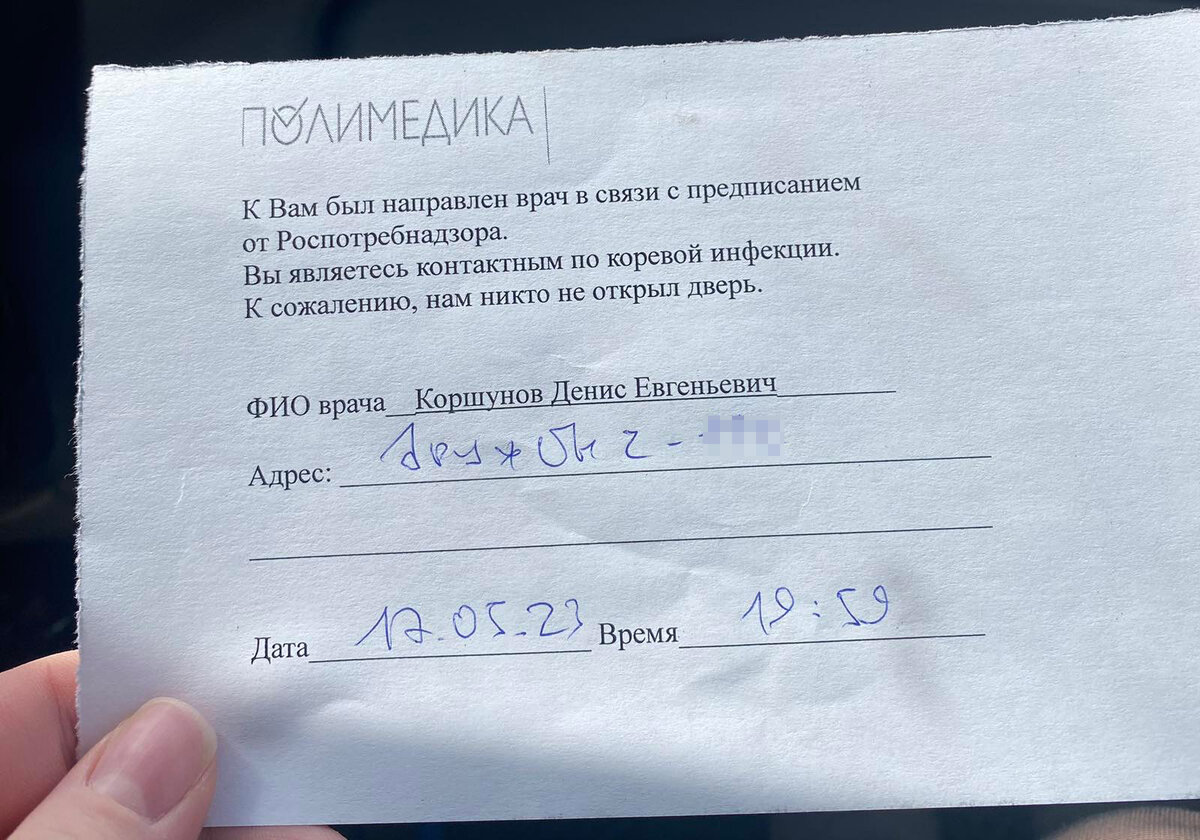 ПОЛИМЕДИКА
К Вам был направлен врач в связи с предписанием
от Роспотребнадзора.
Вы являетесь контактным по коревой инфекции.
К сожалению, нам никто не открыл дверь.
ФИО врача Коршунов Денис Евгеньевич
Адрес:
Дата 17.05.23 Время 19:59